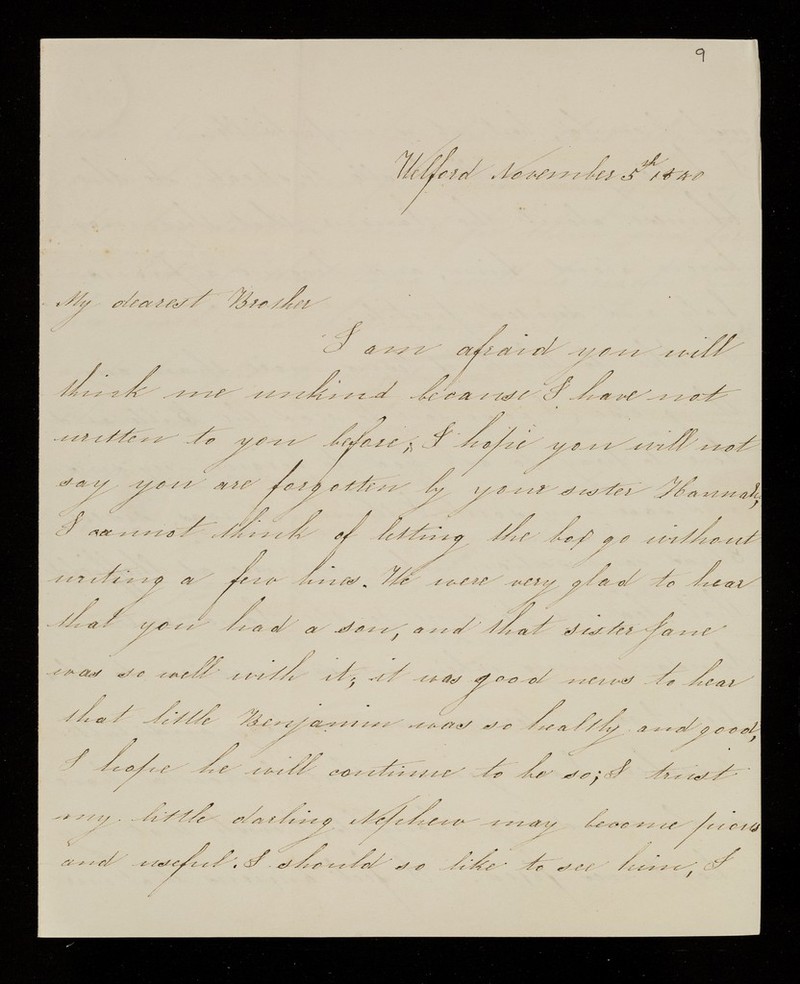 9
Welford November 5th 1840
My dearest Brother
I am afraid you will
think me unkind because I have not
written to you before; I hope you will not
say you are forgotten by your sister Hannah;
I cannot think of letting the box go without
writing a few lines. We were very glad to hear
that you had a son, and that sister Jane
was so well with it; it was good news to hear
that little Benjamin was so healthy and good;
I hope he will continue to be so; I trust
my little darling Nephew may become pious
and useful. I should so like to see him, I